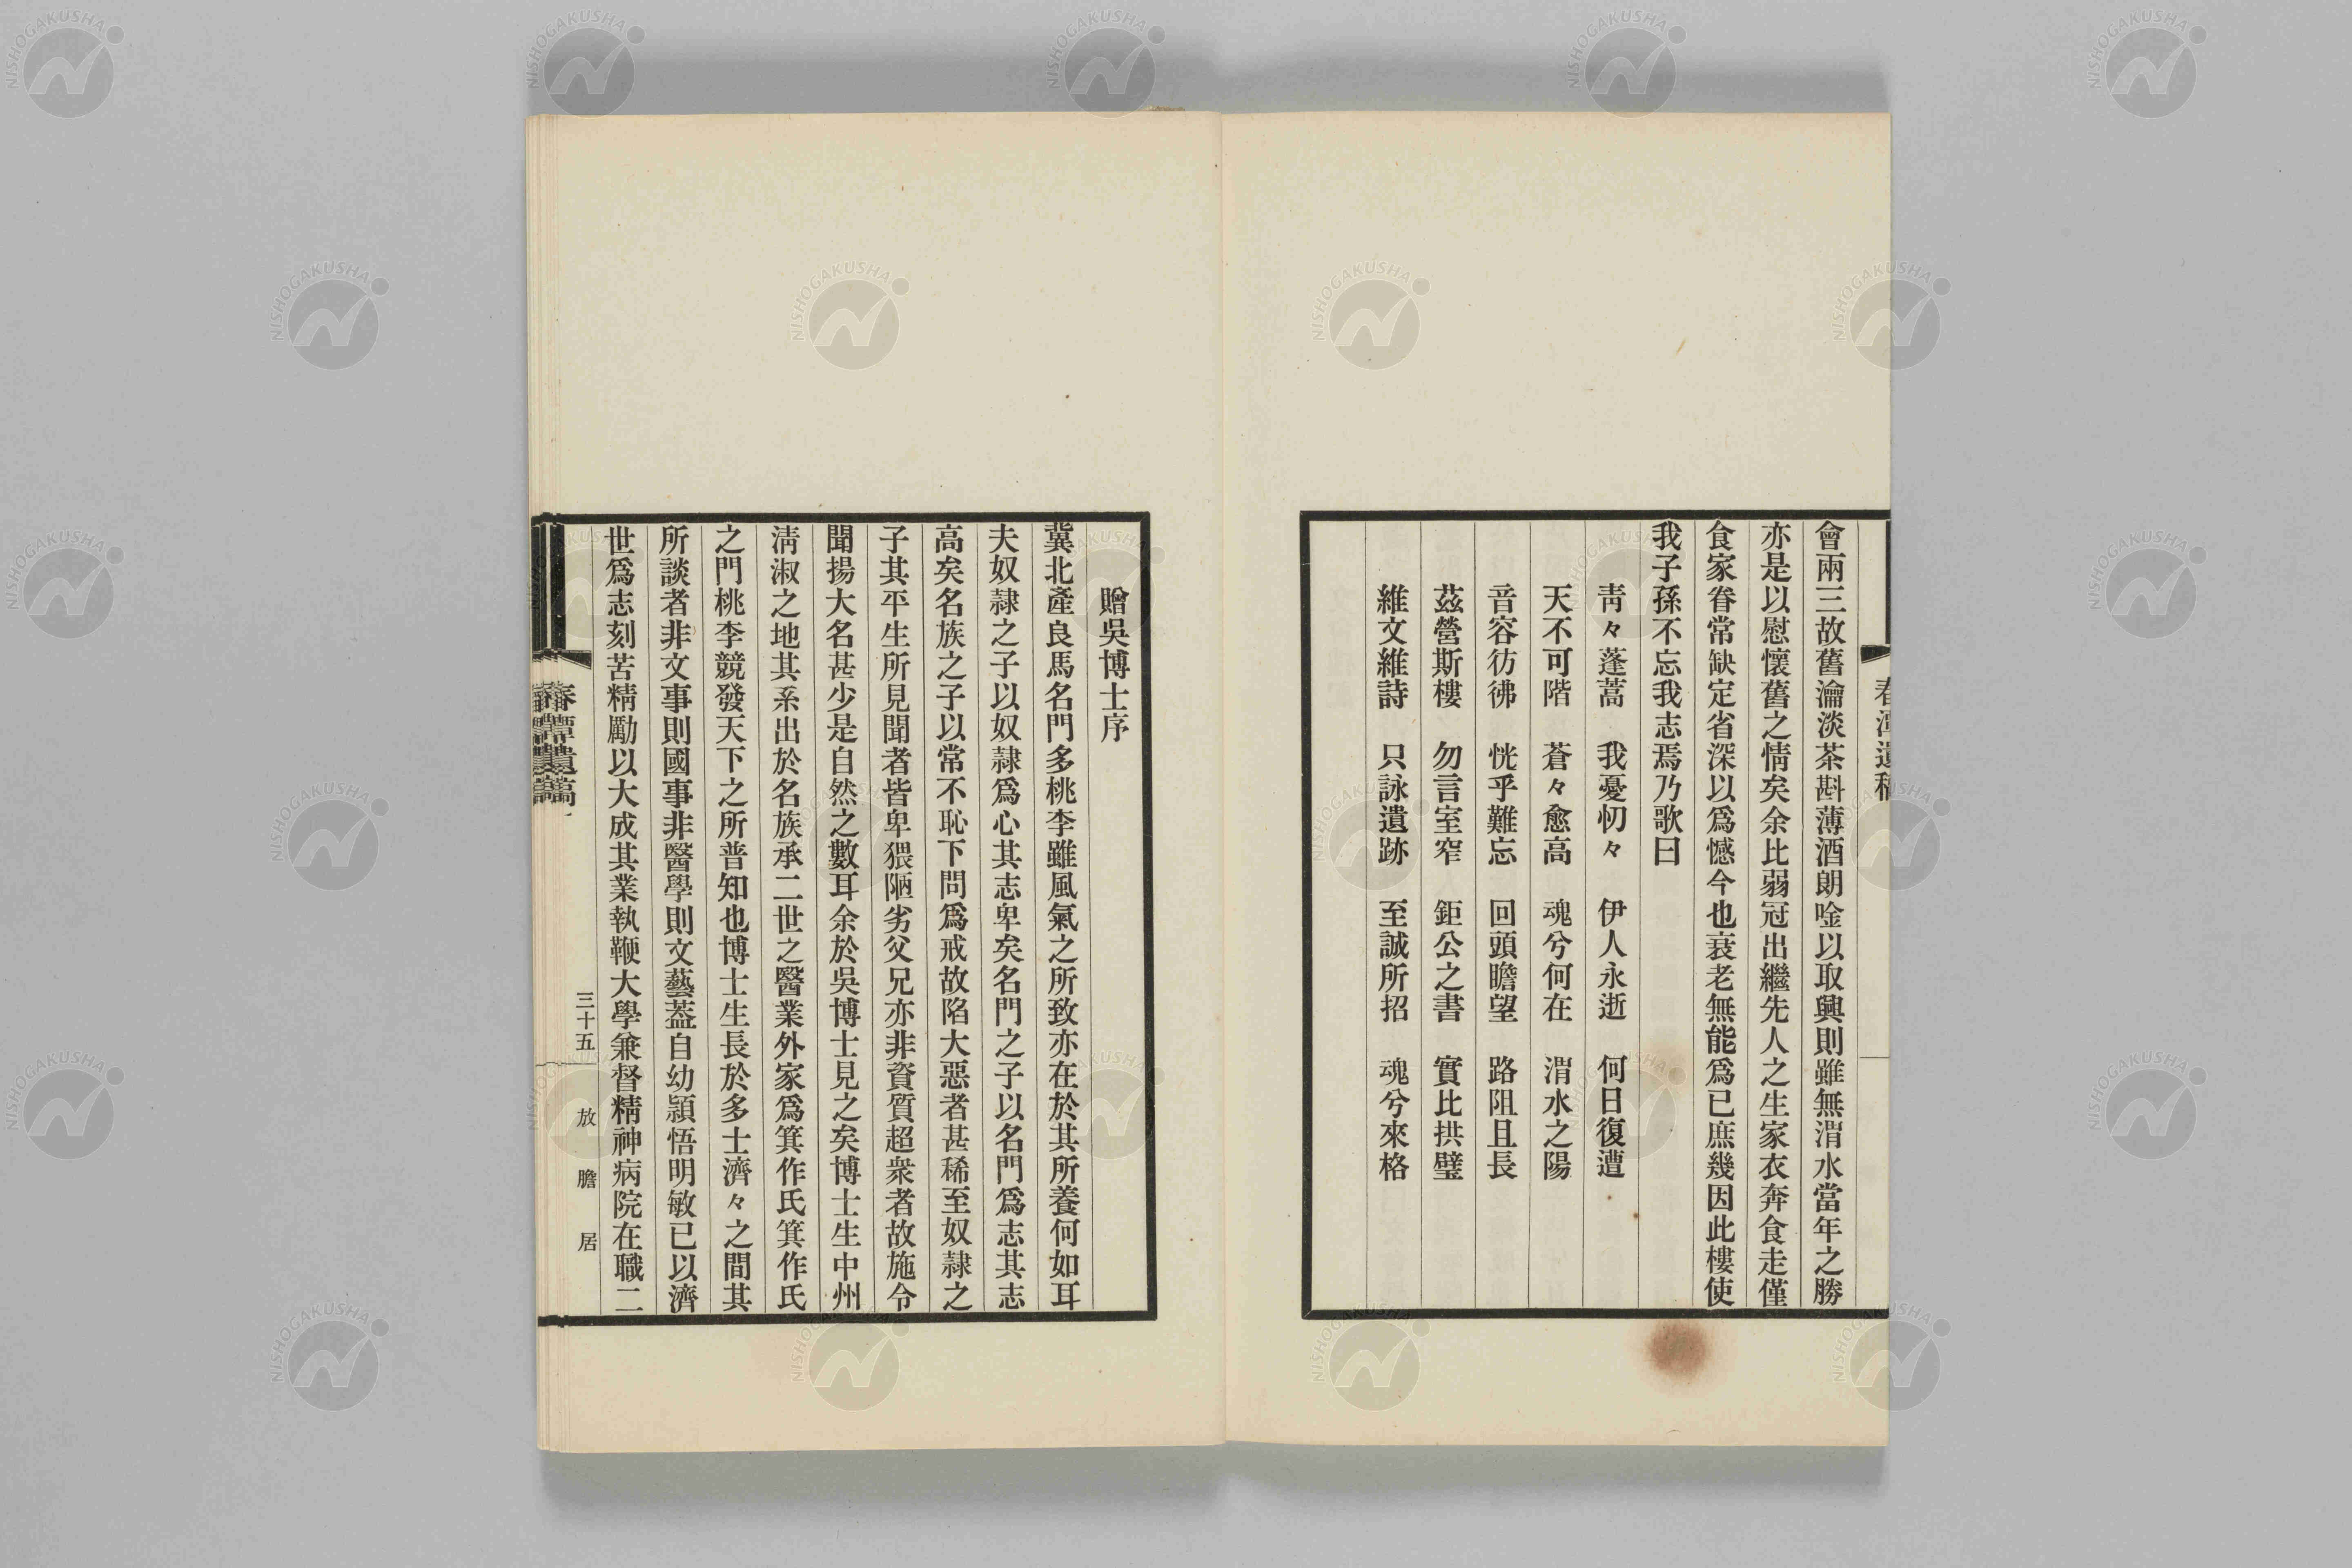 春潭遺稿
會兩三故舊瀹淡茶斟薄酒朗唫以取興則雖無渭水當年之勝
亦是以慰懷舊之情矣余比弱冠出繼先人之生家衣奔食走僅
食家眷常缺定省深以爲憾今也衰老無能爲已庶幾因此樓使
我子孫不忘我志焉乃歌曰
靑々蓬蒿　我憂忉々　伊人永逝　何日復遭
天不可階　蒼々愈高　魂兮何在　渭水之陽
音容彷彿　恍乎難忘　回頭瞻望　路阻且長
茲營斯樓　勿言室窄　鉅公之書　實比拱璧
維文維詩　只詠遺跡　至誠所招　魂兮來格
贈吳博士序
冀北產良馬名門多桃李雖風氣之所致亦在於其所養何如耳
夫奴隷之子以奴隷爲心其志卑矣名門之子以名門爲志其志
高矣名族之子以常不恥下問爲戒故陷大惡者甚稀至奴隷之
子其平生所見聞者皆卑猥陋劣父兄亦非資質超衆者故施令
聞揚大名甚少是自然之數耳余於吳博士見之矣博士生中州
淸淑之地其系出於名族承二世之醫業外家爲箕作氏箕作氏
之門桃李競發天下之所普知也博士生長於多士濟々之間其
所談者非文事則國事非醫學則文藝葢自幼頴悟明敏已以濟
世爲志刻苦精勵以大成其業執鞭大學兼督精神病院在職二
春潭遺稿
三十五
放膽居